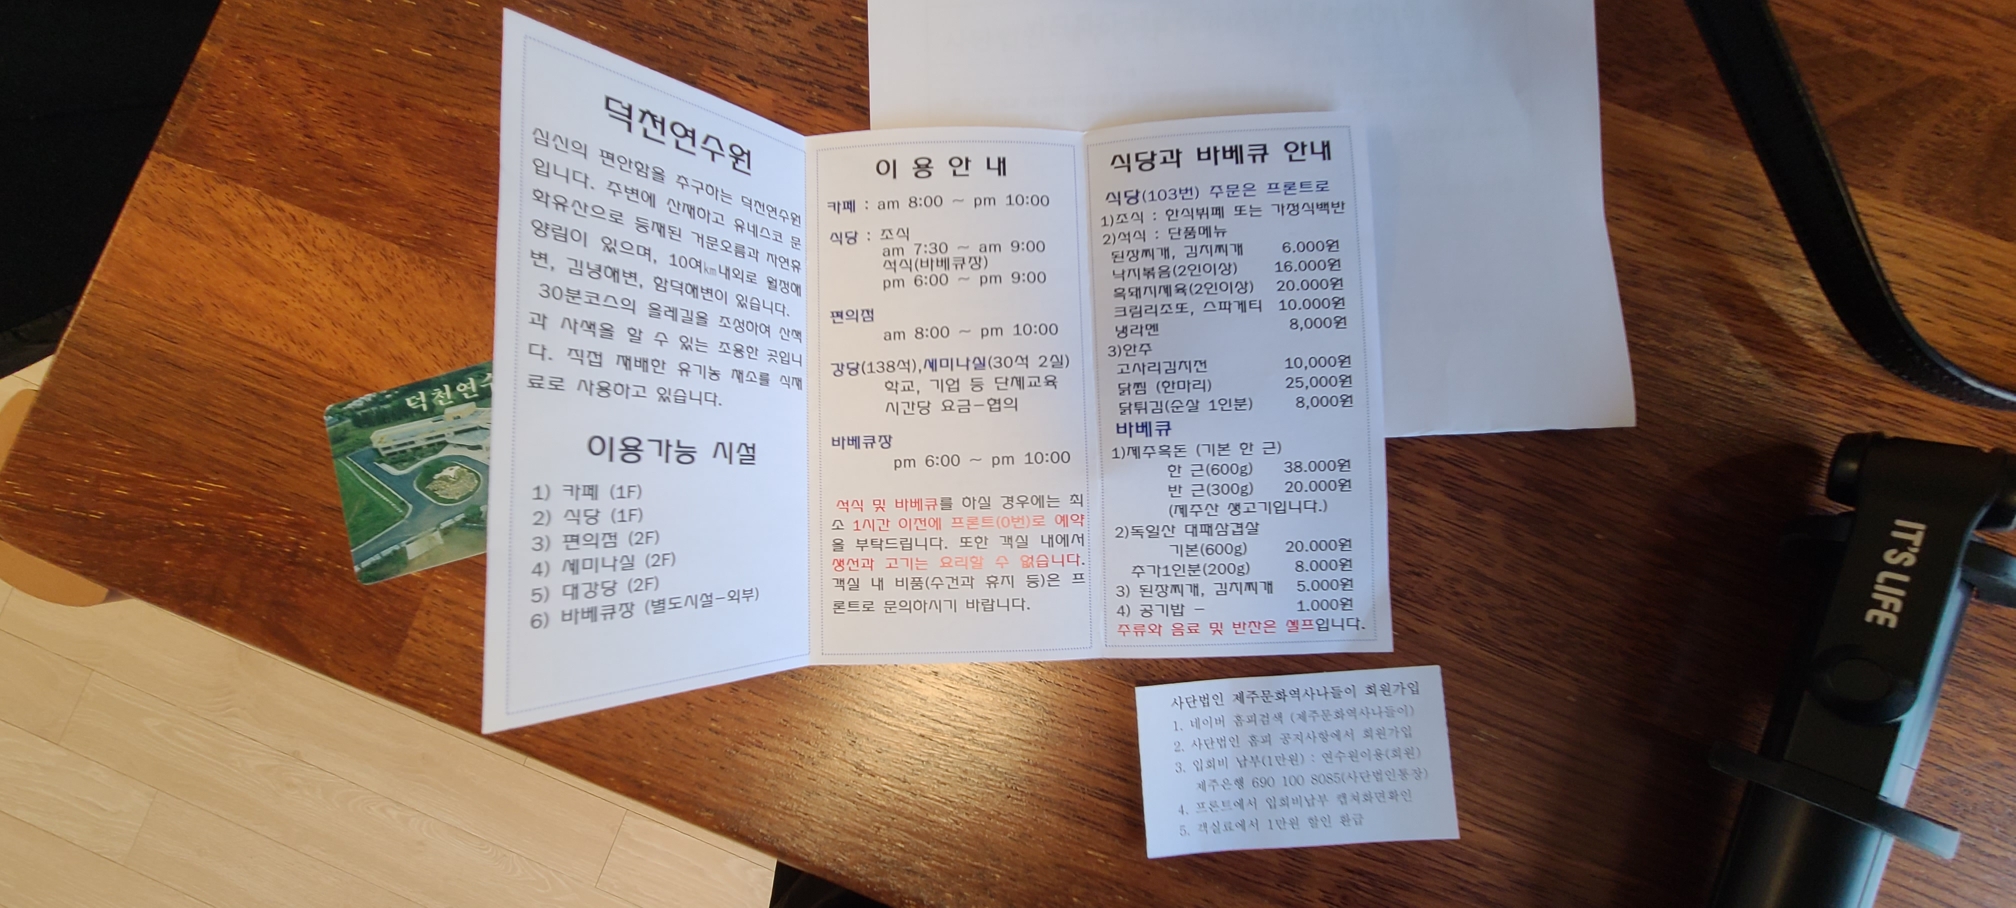 덕천연수원
심신의 편안함을 추구하는 덕천연수원
입니다. 주변에 산재하고 유네스코 문
화유산으로 등재된 거문오름과 자연휴
양림이 있으며, 10여㎞내외로 월정해
변, 김녕해변, 함덕해변이 있습니다.
30분코스의 올레길을 조성하여 산책
과 사색을 할 수 있는 조용한 곳입니
다. 직접 재배한 유기농 채소를 식재
료로 사용하고 있습니다.
이용가능 시설
1) 카페 (1F)
2) 식당 (1F)
3) 편의점 (2F)
4) 세미나실 (2F)
5) 대강당 (2F)
6) 바베큐장 (별도시설-외부)
이 용 안 내
카페 : am 8:00 ~ pm 10:00
식당 : 조식
am 7:30 ~ am 9:00
석식(바베큐장)
pm 6:00 ~ pm 9:00
편의점
am 8:00 ~ pm 10:00
강당(138석),세미나실(30석 2실)
학교, 기업 등 단체교육
시간당 요금-협의
바베큐장
pm 6:00 ~ pm 10:00
석식 및 바베큐를 하실 경우에는 최
소 1시간 이전에 프론트(0번)로 예약
을 부탁드립니다. 또한 객실 내에서
생선과 고기는 요리할 수 없습니다.
객실 내 비품(수건과 휴지 등)은 프
론트로 문의하시기 바랍니다.
식당과 바베큐 안내
식당(103번) 주문은 프론트로
1)조식 : 한식뷔페 또는 가정식백반
2)석식 : 단품메뉴
된장찌개, 김치찌개 6.000원
낙지볶음(2인이상) 16.000원
흑돼지제육(2인이상) 20.000원
크림리조또, 스파게티 10.000원
냉라멘 8,000원
3)안주
고사리김치전 10,000원
닭찜 (한마리) 25,000원
닭튀김(순살 1인분) 8,000원
바베큐
1)제주흑돈 (기본 한 근)
한 근(600g) 38.000원
반 근(300g) 20.000원
(제주산 생고기입니다.)
2)독일산 대패삼겹살
기본(600g) 20.000원
추가1인분(200g) 8.000원
3) 된장찌개, 김치찌개 5.000원
4) 공기밥 - 1.000원
주류와 음료 및 반찬은 셀프입니다.
덕천연수
사단법인 제주문화역사나들이 회원가입
1. 네이버 홈피검색 (제주문화역사나들이)
2. 사단법인 홈피 공지사항에서 회원가입
3. 입회비 납부(1만원) : 연수원이용(회원)
제주은행 690 100 8085(사단법인통장)
4. 프론트에서 입회비납부 캡쳐화면확인
5. 객실료에서 1만원 할인 환급
IT'S LIFE